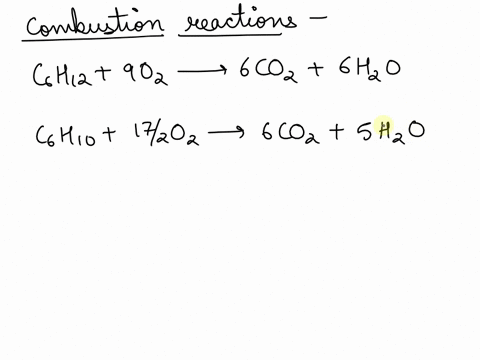 Combustion reactions —
C₆H₁₂ + 9O₂ ⟶ 6CO₂ + 6H₂O
C₆H₁₀ + 17/2O₂ ⟶ 6CO₂ + 5H₂O